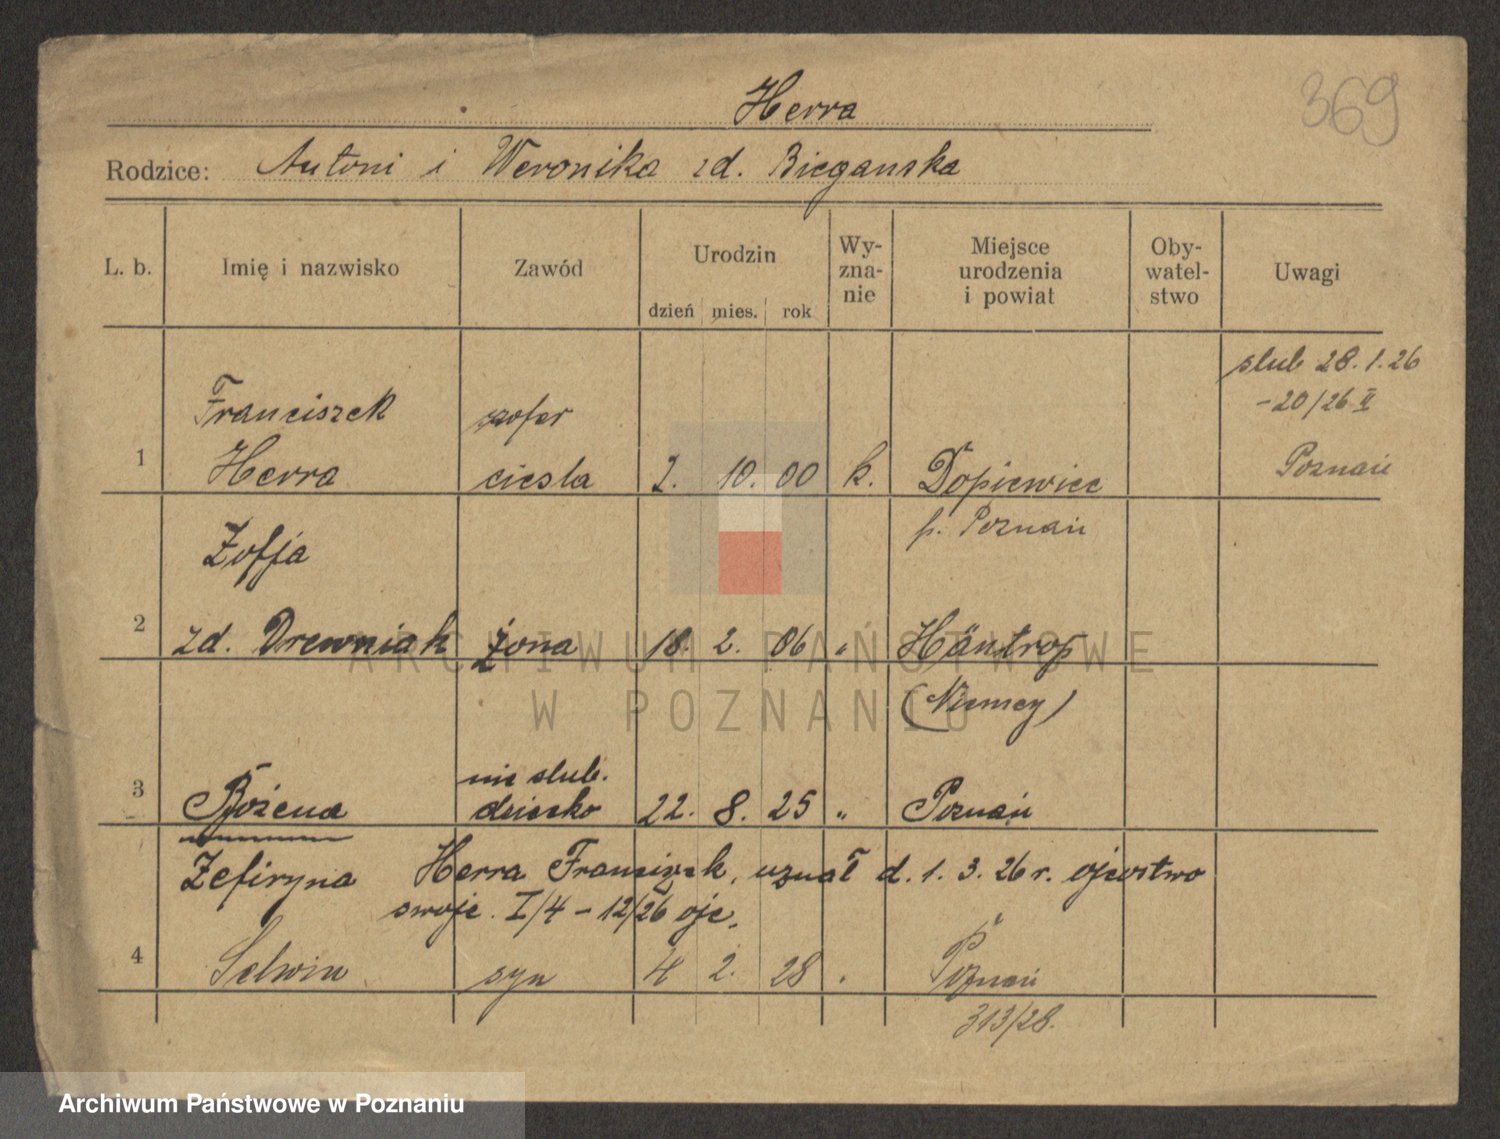 369
Herra
Rodzice: Antoni i Weronika zd. Bieganska
L. b. Imię i nazwisko Zawód Urodzin dzień mies. rok Wy-zna-nie Miejsce urodzenia i powiat Oby-watel-stwo Uwagi
slub 28.1.26
-20/26 II
Poznań
Franciszek szofer
1 Herra ciesla 2. 10. 00 k. Dopiewiec
p. Poznań
Zofja
2 zd. Drewniak Żona 18. 2. 06 " Häntrop
(Niemcy)
nie slub.
3 Bożena dziecko 22. 8. 25 " Poznań
Zefiryna Herra Franciszek, uznał d. 1. 3. 26 r. ojcostwo
swoje. I/4 - 12/26 ojc.
4 Selwin syn 4 2. 28 " Poznań
313/28.
ARCHIWUM PAŃSTWOWE
W POZNANIU
Archiwum Państwowe w Poznaniu